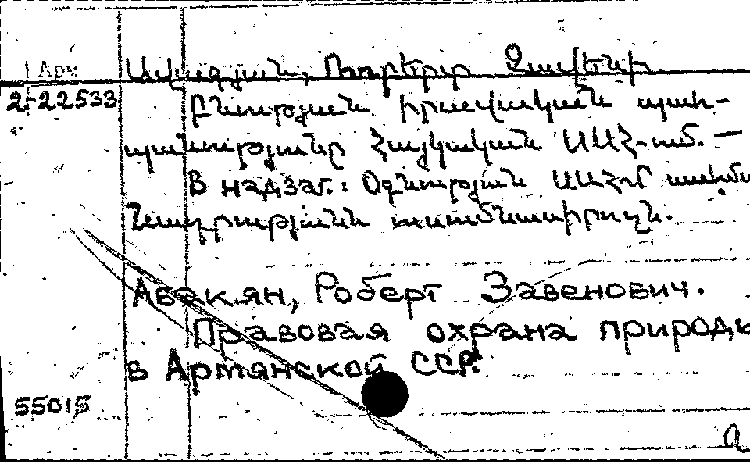 Арм
Ավագյան, Ռոբերտ Զավենի
2-22533
Բնության իրավական պահ-
պանությունը Հայկական ՍՍՀ-ում. —
В надзаг.: Օգնություն
Авакян, Роберт Завенович.
Правовая охрана природы
в Армянской ССР.
55015
a